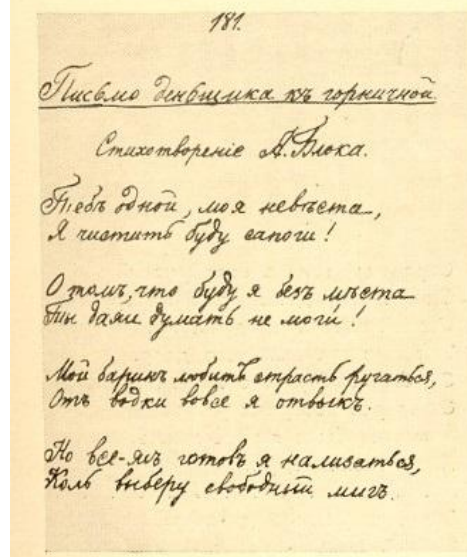 181.
Письмо деньщика къ горничной.
Стихотвореніе А. Блока.
Тебѣ одной, моя невѣста,
Я чистить буду сапоги!
О томъ, что буду я безъ мѣста
Ты даже думать не моги!
Мой баринъ любитъ страсть ругаться,
Отъ водки вовсе я отвыкъ.
Но все-жъ готовъ я нализаться,
Коль выберу свободный мигъ.